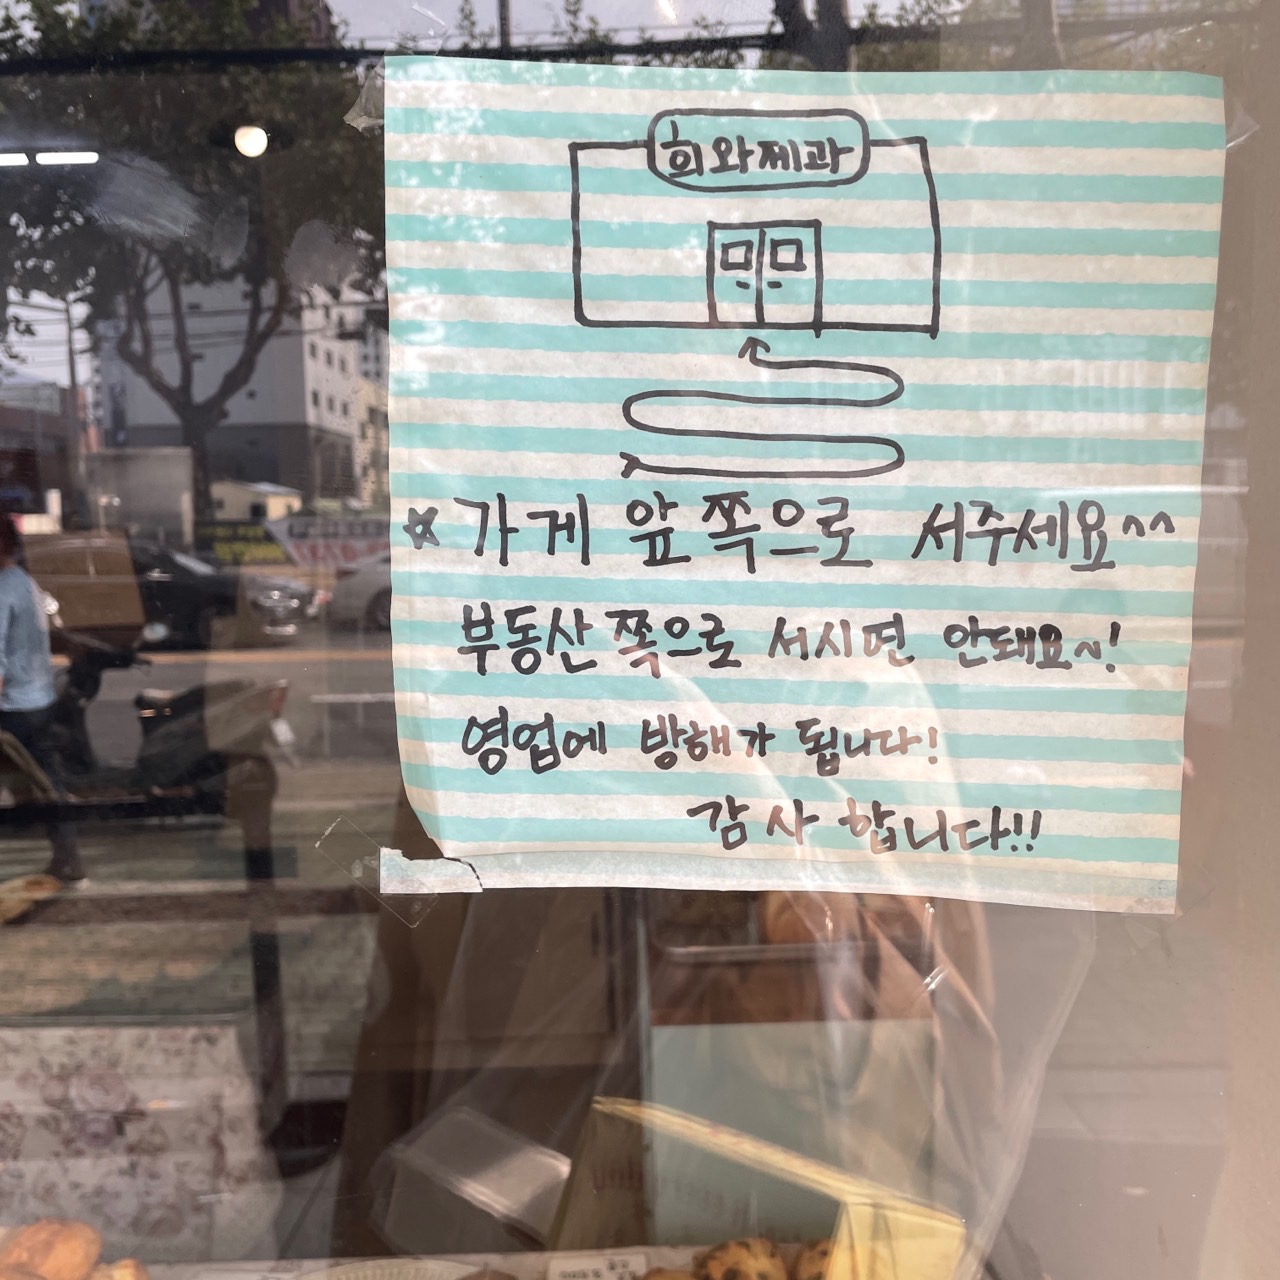 희와제과
☆ 가게 앞쪽으로 서주세요^^
부동산쪽으로 서시면 안돼요~!
영업에 방해가 됩니다!
감사합니다!!